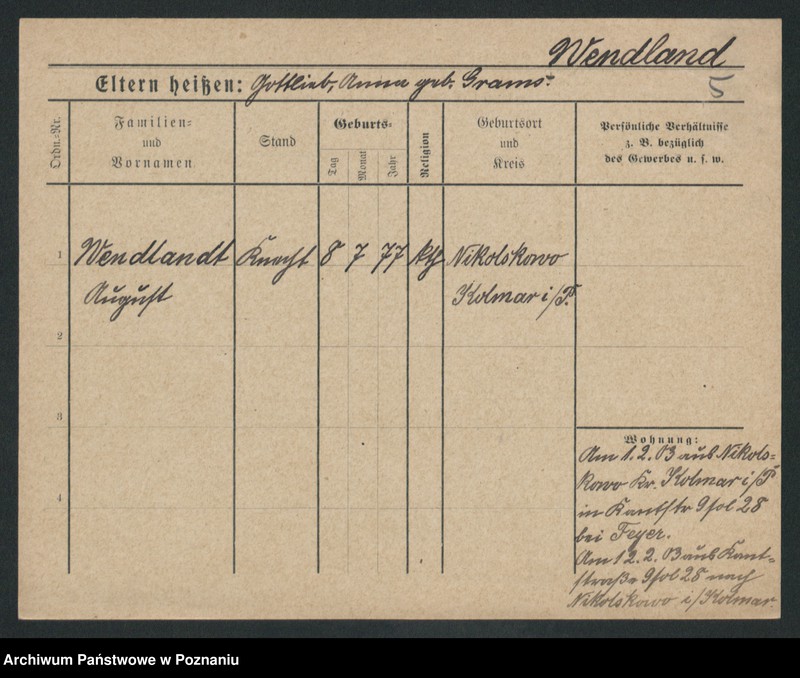 Wendland
5
Eltern heißen: Gottlieb, Anna geb. Grams.
Ordn.=Nr.
Familien= und Vornamen
Stand
Geburts=
Tag
Monat
Jahr
Religion
Geburtsort und Kreis
Persönliche Verhältnisse
z. B. bezüglich
des Gewerbes u. s. w.
1
Wendlandt Knecht 8 7 77 kth Nikolskowo
August Kolmar i/P.
2
3
4
Wohnung:
Am 1. 2. 03 aus Nikols=
kowo Kr. Kolmar i/P
in Kantstr 9 fol 28
bei Feyer.
Am 12. 2. 03 aus Kant=
straße 9 fol 28 nach
Nikolskowo i/Kolmar.
Archiwum Państwowe w Poznaniu